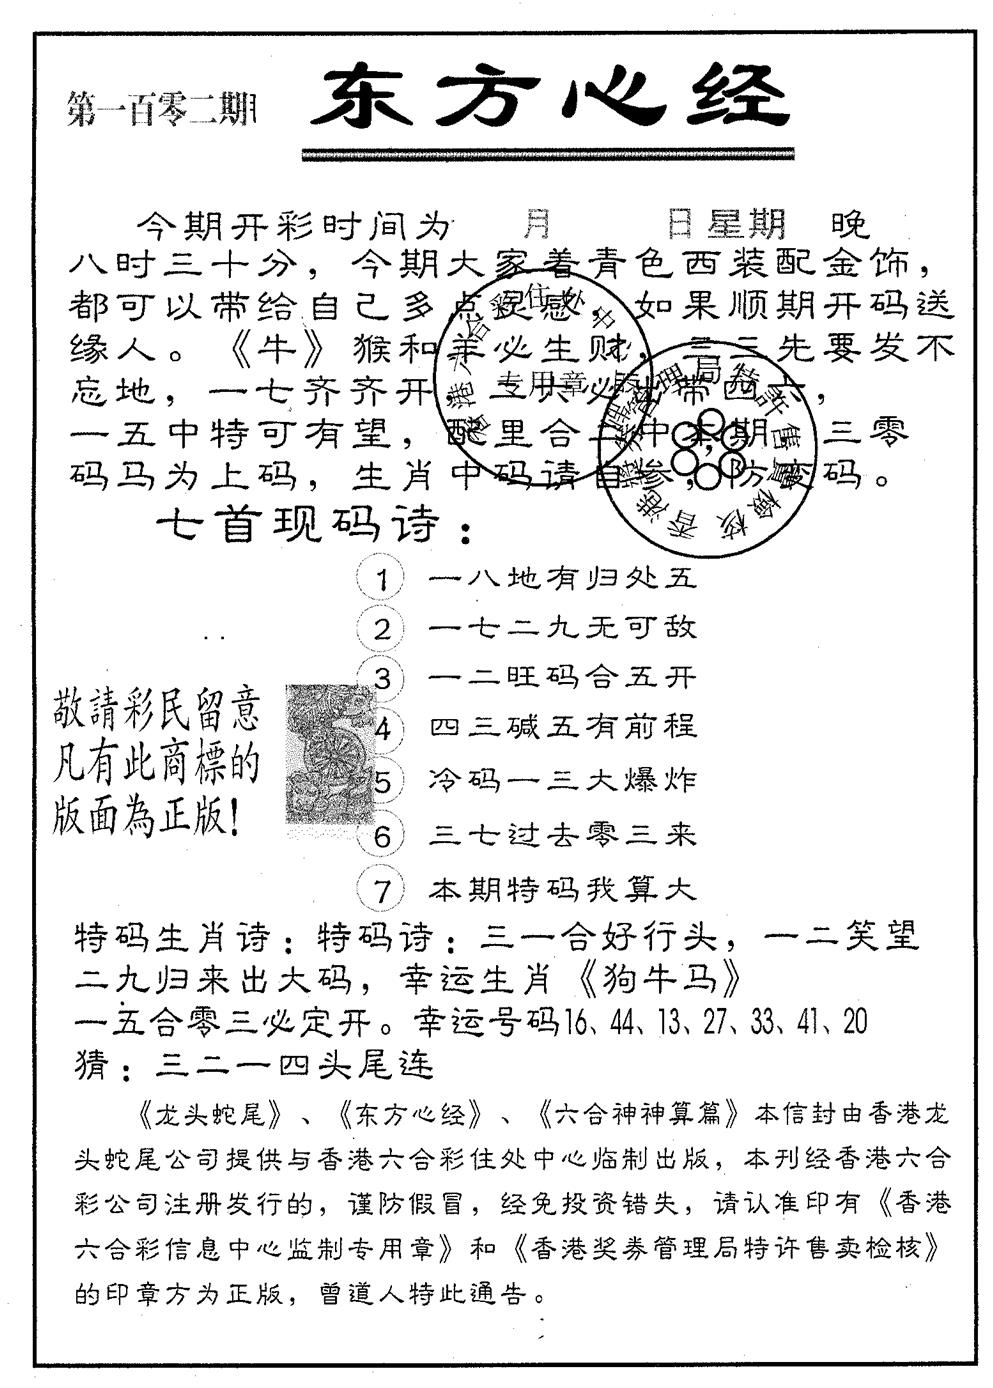 第一百零二期
东方心经
今期开彩时间为 月 日星期 晚
八时三十分，今期大家着青色西装配金饰，
都可以带给自己多点灵感，如果顺期开码送
缘人。《牛》猴和羊必生财，三三先要发不
忘地，一七齐齐开，二六必出带四六，
一五中特可有望，配里合 中本期 三零
码马为上码，生肖中码请自参，防 码。
专用章
七首现码诗：
1 一八地有归处五
2 一七二九无可敌
3 一二旺码合五开
4 四三碱五有前程
5 冷码一三大爆炸
6 三七过去零三来
7 本期特码我算大
敬請彩民留意
凡有此商標的
版面為正版！
特码生肖诗：特码诗：三一合好行头，一二笑望
二九归来出大码，幸运生肖《狗牛马》
一五合零三必定开。幸运号码16、44、13、27、33、41、20
猜：三二一四头尾连
《龙头蛇尾》、《东方心经》、《六合神神算篇》本信封由香港龙
头蛇尾公司提供与香港六合彩住处中心临制出版，本刊经香港六合
彩公司注册发行的，谨防假冒，经免投资错失，请认准印有《香港
六合彩信息中心监制专用章》和《香港奖券管理局特许售卖检核》
的印章方为正版，曾道人特此通告。